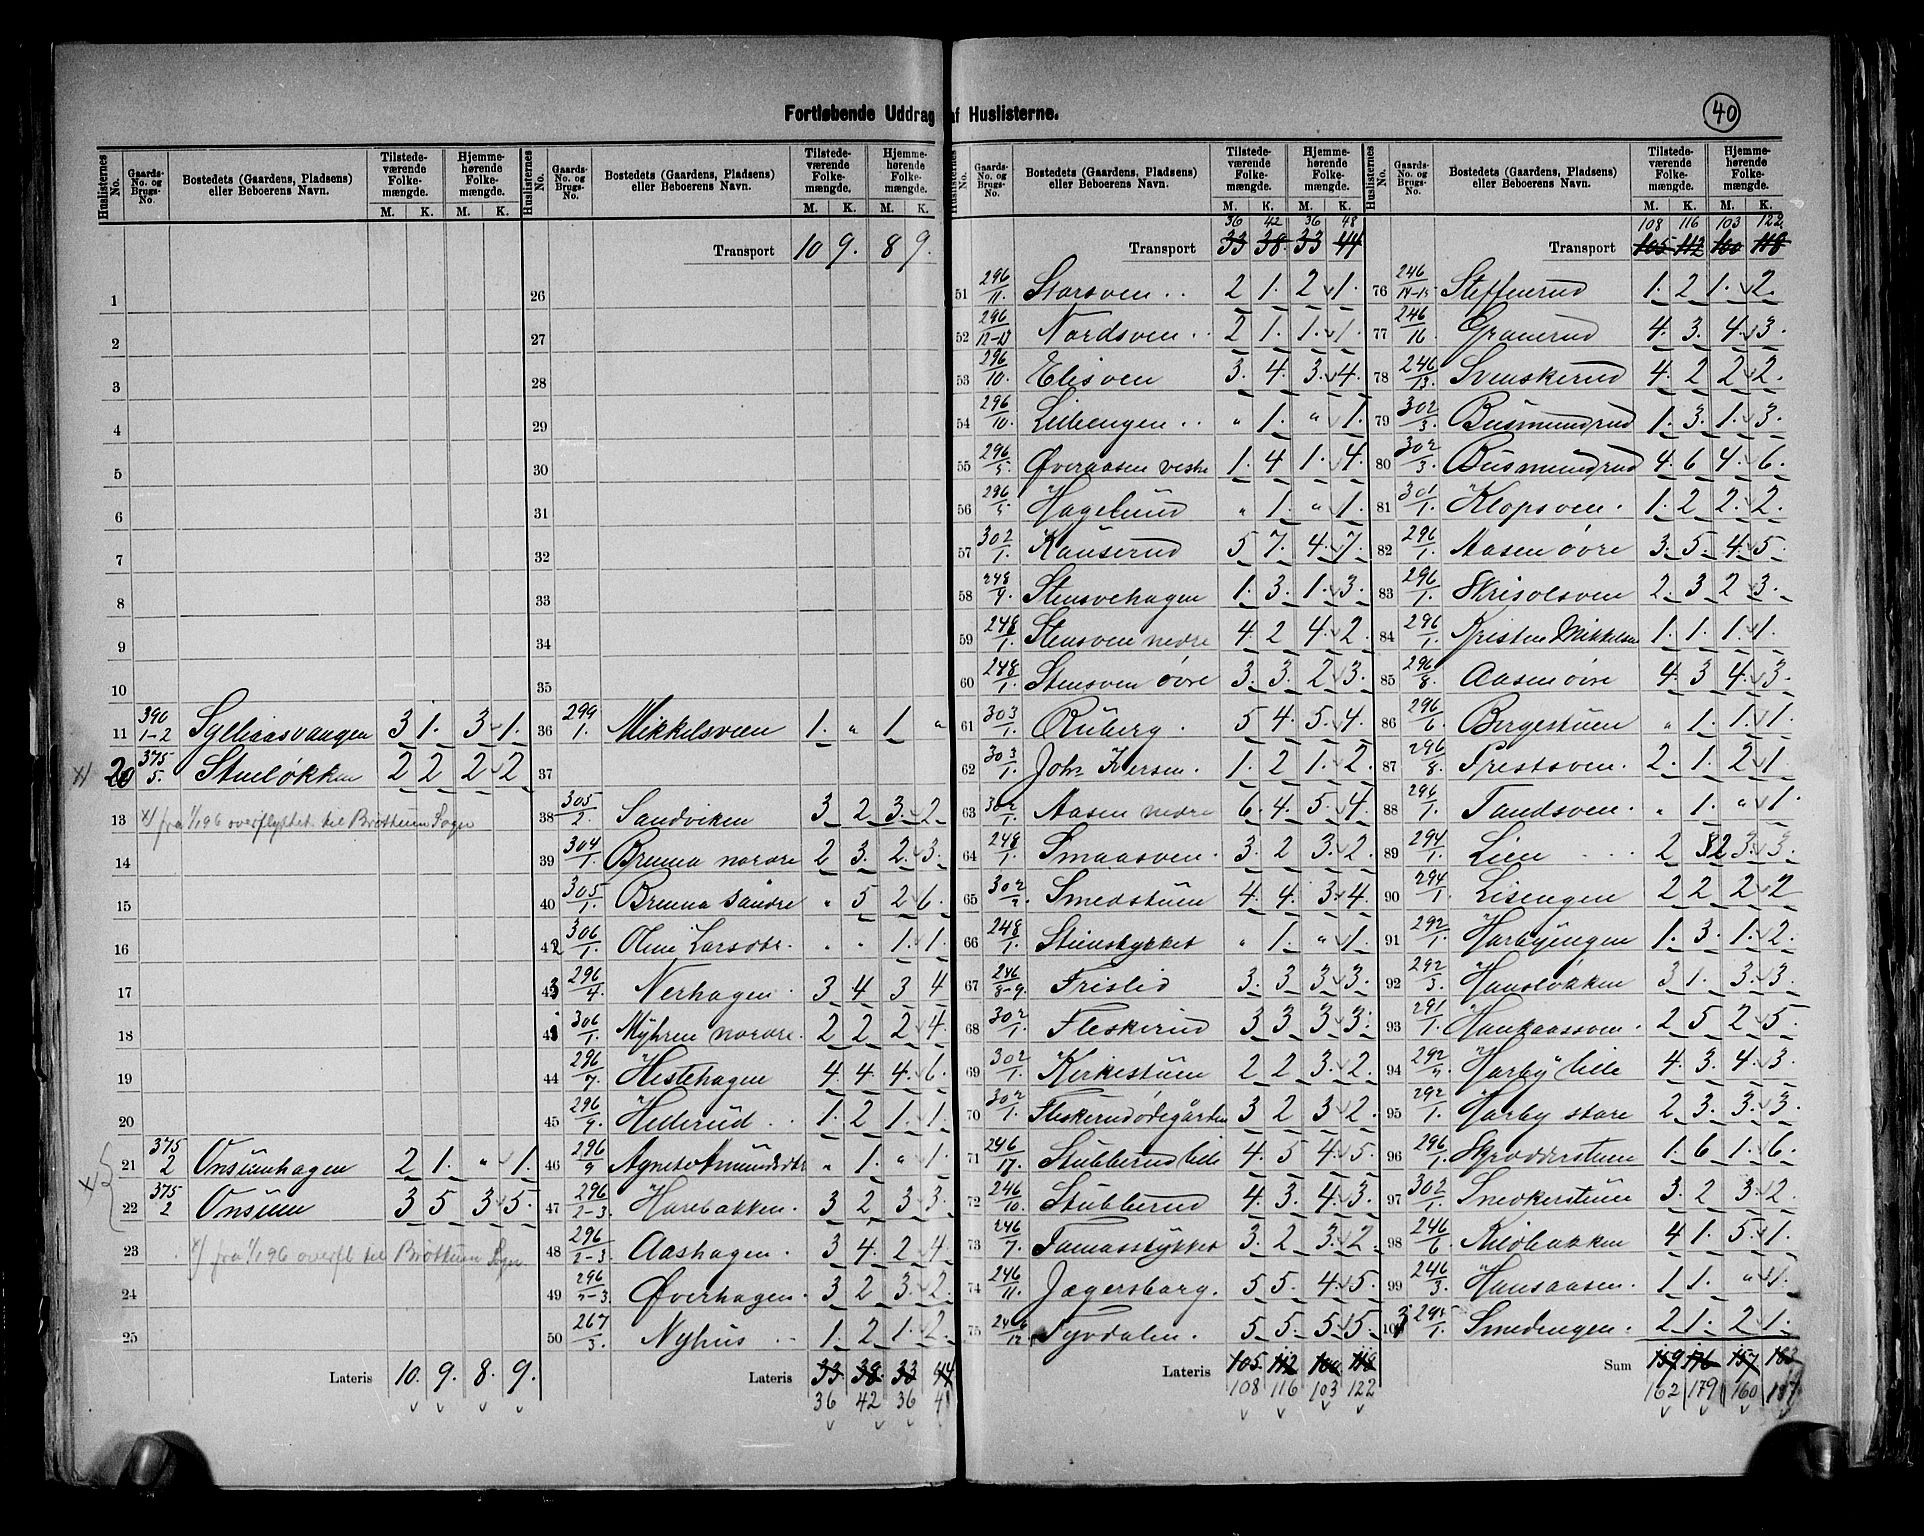 Fortløbende Uddrag af Huslisterne.
40
Huslisternes No. | Gaards-No. og Brugs-No. | Bostedets (Gaardens, Pladsens) eller Beboerens Navn. | Tilstedeværende Folkemængde. M. K. | Hjemmehørende Folkemængde. M. K.
1
2
3
4
5
6
7
8
9
10
11 390/1-2 Sylliaasvangen 3 1. 3 1.
x) 20 375/5. Stenløkken 2 2 2 2
13 x) fra 1/1 96 overflyttet til Brøttum Sogn
14
15
16
17
18
19
20
21 375/2 Onsumhagen 2 1. " 1.
22 375/2 Onsum 3 5 3 5.
23 x) fra 1/1 96 overfl til Brøttum Sogn
24
25
Lateris 10. 9. 8. 9.
Transport 10 9. 8 9.
26
27
28
29
30
31
32
33
34
35
36 299/1. Mikkelsveen 1. " 1 "
37
38 305/2. Sandviken 3 2 3. 2
39 304/1. Bruna nordre 2 3. 2. 3.
40 305/1. Bruna søndre " 5 2 6.
42 306/1. Oline Larsdtr. " " 1. 1.
43 296/4. Nerhagen 3 4 3 4
306/1. Myhren nordre. 2 2 2 4.
44 296/7. Hestehagen 4. 4. 4. 6.
45 296/9. Hellerud 1. 2 1. 1.
46 296/9 Agnete Amundsdtr " 1. " 1.
47 296/2-3. Harebakken. 3 2 3 3.
48 296/2-3 Aashagen. 3 4. 2 4.
49 296/2-3 Øverhagen. 3 2 3. 2.
50 267/3. Nyhus 1. 2 1. 2.
Lateris 33. 38. 33 44
36 42 36 48
36 42 36 48
Transport 33 38 33 44
51 296/11. Storsven 2 1. 2 1.
52 296/12-13 Nordsven 2 1. 1. 1.
53 296/10. Elisven 3. 4. 3. 4.
54 296/10. Lillengen " 1. " 1.
55 296/5. Øveraasen vestre 1. 4 1. 4.
56 296/5 Hagelund " 1. " 1.
57 302/1. Kauserud 5 7. 4. 7.
58 248/9. Stensvehagen 1. 3. 1. 3.
59 248/1. Stensven nedre 4. 2 4. 2.
60 248/1. Stensven øvre 3. 3. 2 3.
61 303/1. Ruberg. 5 4. 5. 4.
62 303/1. Johs Iversen. 1. 2 1. 2.
63 302/1. Aasen nedre 6. 4. 5. 4.
64 248/1. Smaasven. 3. 2 3. 2.
65 302/2. Smedstuen 4. 4. 3. 4.
66 248/1. Stenstykket " 1. " 1.
67 246/8-9. Frislid 3. 3. 3. 3.
68 302/1. Fleskerud 3 3 3 3.
69 302/1. Kirkestuen 2 2 3. 2.
70 302/1. Fleskerudødegården 3 2 3 2.
71 246/17. Stubberud lille 4. 5 4. 5.
72 246/10. Stubberud 4. 3. 4. 3.
73 246/7. Tamasstykket 3. 2 3. 2
74 246/11. Jægersborg. 5 5. 4. 5.
75 246/12 Tyvdalen. 5. 5. 5. 5.
Lateris 105 112 100 118
108 116 103 122
108 116 103 122.
Transport 105 112 100 118
76 246/14-15 Steffenrud 1. 2 1. 2.
77 246/16 Granerud 4. 3. 4. 3.
78 246/13. Svenskerud 4. 2 2 2.
79 302/3. Busmundrud 1. 3. 1. 3.
80 302/3. Busmundrud 4. 6 4. 6.
81 301/1. Klopsven. 1. 2 2. 2.
82 296/1. Aasen øvre 3. 5. 4. 5.
83 296/1. Skrisolsven 2. 3 2 3.
84 296/1. Kristen Mikkelsen 1. 1. 1. 1.
85 296/8. Aasen øvre 4. 3 4. 3.
86 296/6. Bergestuen " 1. 1. 1.
87 296/8. Prestsven. 2. 1. 2 1.
88 296/1. Tandsven. " 1. " 1.
89 294/1. Lien 2 2 3. 3.
90 294/1. Lisengen 2 2 2 2
91 292/1. Harbyengen 1. 3. 1. 2.
92 292/3. Hansløkken 3 1. 3. 3.
93 291/1. Haukaassven. 2 5 2 5.
94 292/2. Harby lille 4. 3. 4. 3.
95 292/1. Harby store 2 3. 3. 3.
96 296/1. Skrædderstuen 1. 6 1. 6.
97 302/1. Snekerstuen 3. 2 3. 2.
98 246/6. Kildbakken 4. 1. 5. 1.
99 246/3. Hansaasen. 1. 1. " 1.
100 294/1. Smedengen. 2. 1. 2. 1.
Sum 159 176 157 183
162 179 160 187